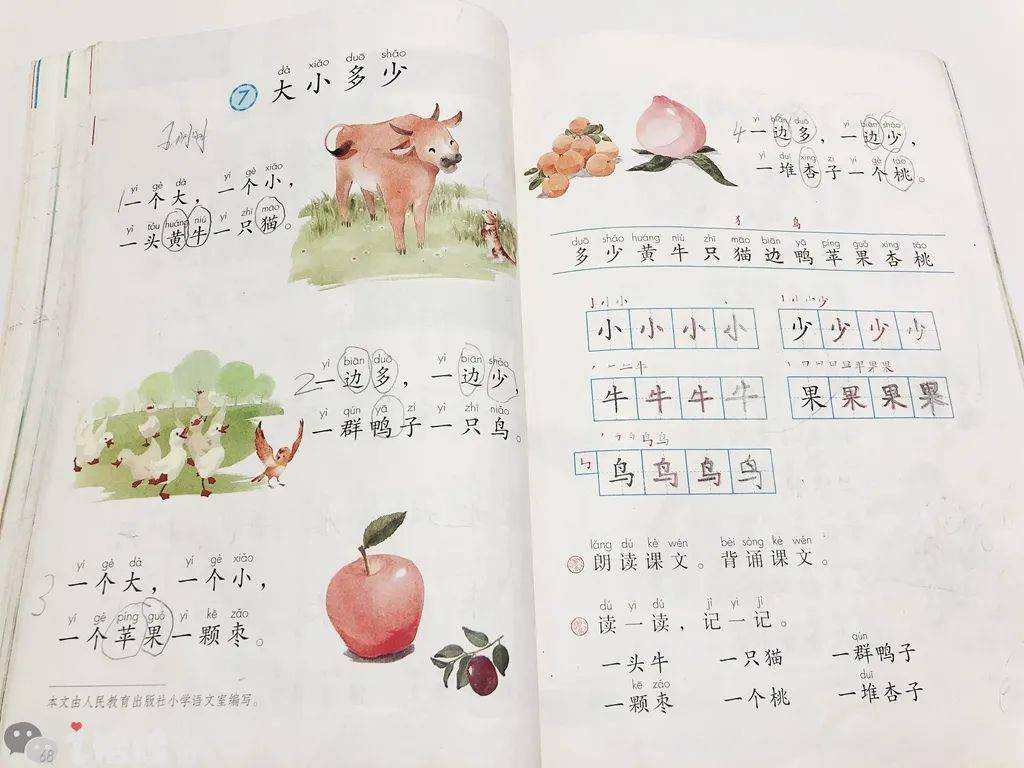 dà xiǎo duō shǎo
7 大小多少
1 yí gè dà yí gè xiǎo
一个大，一个小，
yì tóu huáng niú yì zhī māo
一头黄牛一只猫。
yì biān duō yì biān shǎo
2 一边多，一边少，
yì qún yā zi yì zhī niǎo
一群鸭子一只鸟。
3 yí gè dà yí gè xiǎo
一个大，一个小，
yí gè píng guǒ yì kē zǎo
一个苹果一颗枣。
本文由人民教育出版社小学语文室编写。
68
yì biān duō yì biān shǎo
4 一边多，一边少，
yì duī xìng zi yí gè táo
一堆杏子一个桃。
犭 鸟
duō shǎo huáng niú zhī māo biān yā píng guǒ xìng táo
多少黄牛只猫边鸭苹果杏桃
小 小 小 小
少 少 少 少
牛 牛 牛 牛
果 果 果 果
鸟 鸟 鸟 鸟
lǎng dú kè wén bèi sòng kè wén
朗读课文。背诵课文。
dú yi dú jì yi jì
读一读，记一记。
qún
一头牛 一只猫 一群鸭子
kē zǎo duī
一颗枣 一个桃 一堆杏子